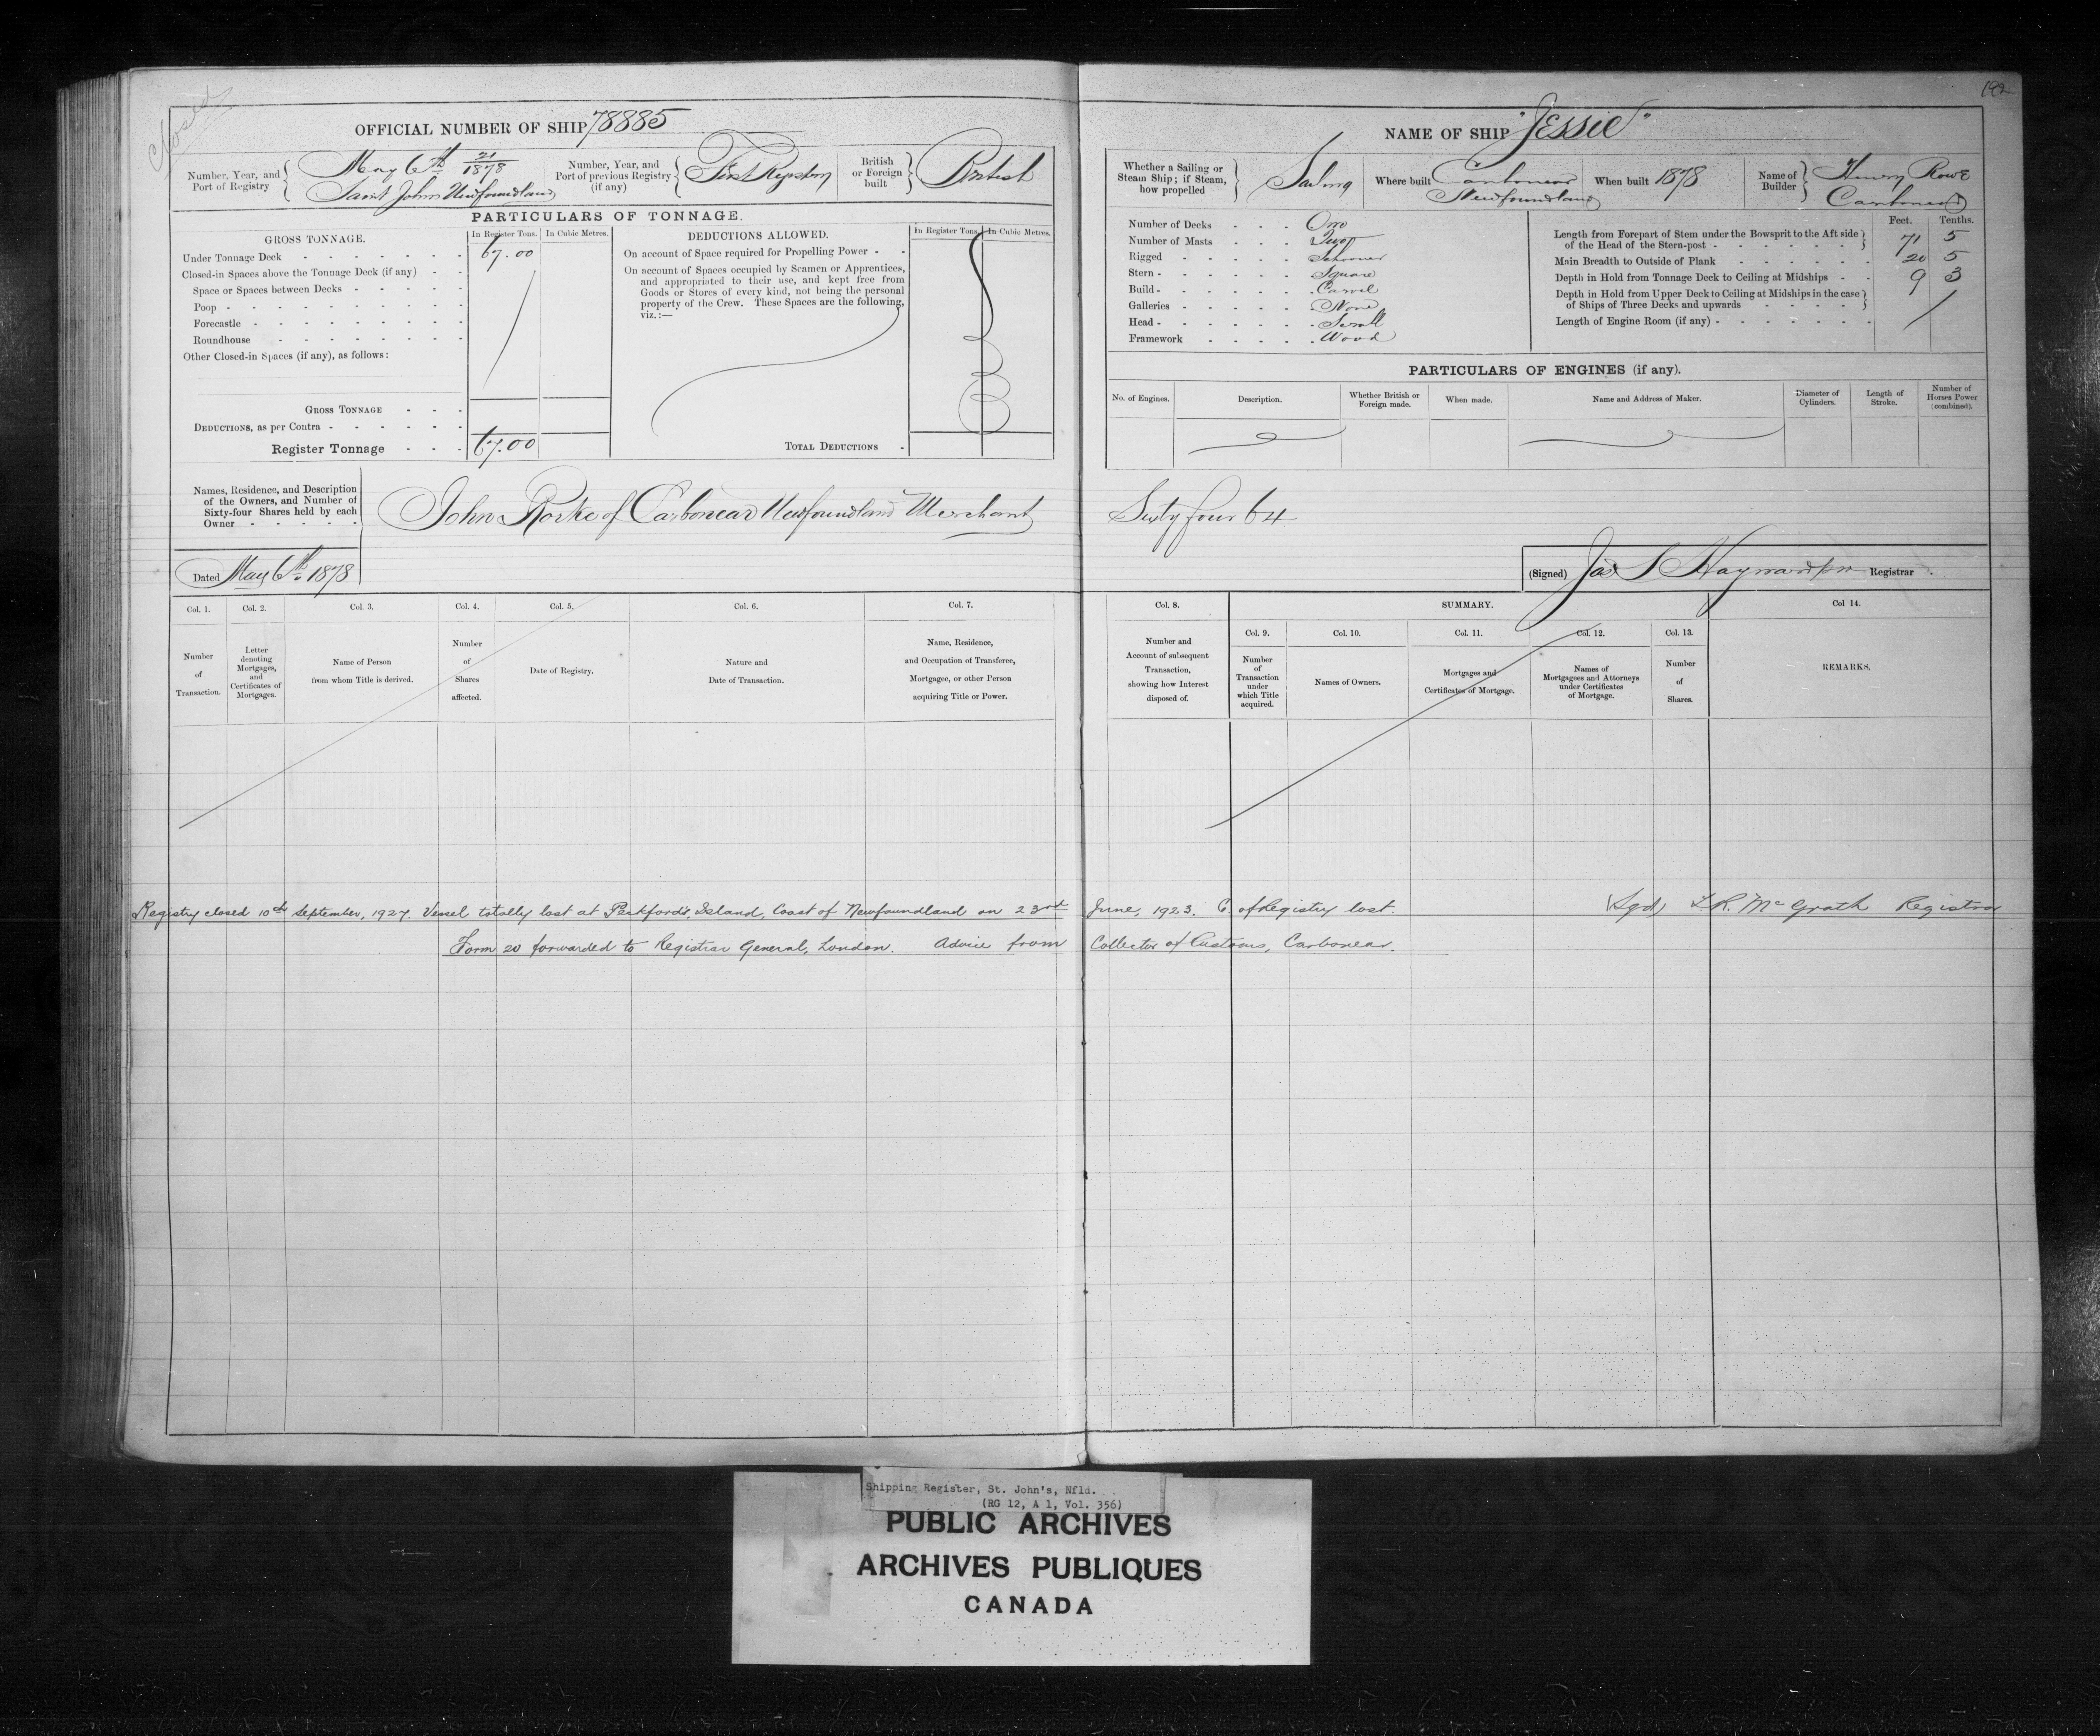 Closed
192
OFFICIAL NUMBER OF SHIP 78885
Number, Year, and Port of Registry { May 6th 21/1878 Saint Johns Newfoundland
Number, Year, and Port of previous Registry (if any) { First Registry
British or Foreign built } British
PARTICULARS OF TONNAGE.
GROSS TONNAGE.
In Register Tons. In Cubic Metres.
Under Tonnage Deck 67.00
Closed-in Spaces above the Tonnage Deck (if any)
Space or Spaces between Decks
Poop
Forecastle
Roundhouse
Other Closed-in Spaces (if any), as follows:
GROSS TONNAGE
DEDUCTIONS, as per Contra
Register Tonnage 67.00
DEDUCTIONS ALLOWED.
In Register Tons. In Cubic Metres.
On account of Space required for Propelling Power
On account of Spaces occupied by Seamen or Apprentices,
and appropriated to their use, and kept free from
Goods or Stores of every kind, not being the personal
property of the Crew. These Spaces are the following,
viz.:—
TOTAL DEDUCTIONS
Names, Residence, and Description
of the Owners, and Number of
Sixty-four Shares held by each
Owner
John Rorke of Carbonear Newfoundland Merchant
Dated May 6th 1878
NAME OF SHIP "Jessie"
Whether a Sailing or Steam Ship; if Steam, how propelled } Sailing
Where built Carbonear Newfoundland
When built 1878
Name of Builder } Henry Rowe Carbonear
Number of Decks One
Number of Masts Two
Rigged Schooner
Stern Square
Build Carvel
Galleries None
Head Scroll
Framework Wood
Feet. Tenths.
Length from Forepart of Stem under the Bowsprit to the Aft side of the Head of the Stern-post 71 5
Main Breadth to Outside of Plank 20 5
Depth in Hold from Tonnage Deck to Ceiling at Midships 9 3
Depth in Hold from Upper Deck to Ceiling at Midships in the case of Ships of Three Decks and upwards
Length of Engine Room (if any)
PARTICULARS OF ENGINES (if any).
No. of Engines. Description. Whether British or Foreign made. When made. Name and Address of Maker. Diameter of Cylinders. Length of Stroke. Number of Horses Power (combined).
Sixty four 64
(Signed) Jas S Hayward Registrar.
Col. 1. Col. 2. Col. 3. Col. 4. Col. 5. Col. 6. Col. 7.
Number of Transaction.
Letter denoting Mortgages, and Certificates of Mortgages.
Name of Person from whom Title is derived.
Number of Shares affected.
Date of Registry.
Nature and Date of Transaction.
Name, Residence, and Occupation of Transferee, Mortgagee, or other Person acquiring Title or Power.
Col. 8. SUMMARY. Col 14.
Col. 9. Col. 10. Col. 11. Col. 12. Col. 13.
Number and Account of subsequent Transaction, showing how Interest disposed of.
Number of Transaction under which Title acquired.
Names of Owners.
Mortgages and Certificates of Mortgage.
Names of Mortgagees and Attorneys under Certificates of Mortgage.
Number of Shares.
REMARKS.
Registry closed 10th September, 1927. Vessel totally lost at Peckford's Island, Coast of Newfoundland on 23rd June, 1923. C. of Registry lost. (Sgd) McGrath Registrar
Form 20 forwarded to Registrar General, London. Advice from Collector of Customs, Carbonear.
Shipping Register, St. John's, Nfld.
(RG 12, A 1, Vol. 356)
PUBLIC ARCHIVES
ARCHIVES PUBLIQUES
CANADA